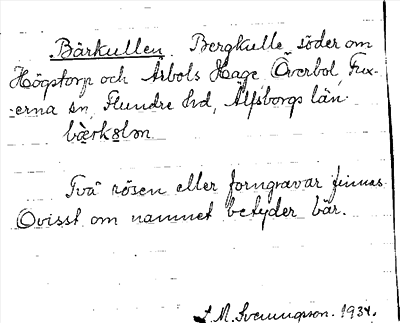 Bärkullen. Bergkulle söder om
Högstorp och Arbols Hage Överbol, Fux-
-erna sn, Flundre hd, Älfsborgs län.
bæ̀rkɵlən
Två rösen eller forngravar finnas.
Ovisst om namnet betyder bär.
M. Svenungson. 1934.